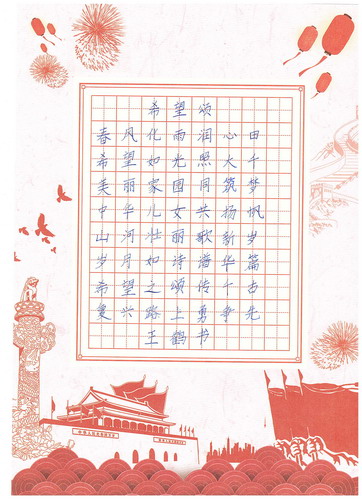 希望颂
春风化雨润心田
希望如光照大千
美丽家国同筑梦
中华儿女共扬帆
山河壮丽歌新岁
岁月如诗谱华篇
希望之颂传千古
复兴路上勇争先
王鹤书